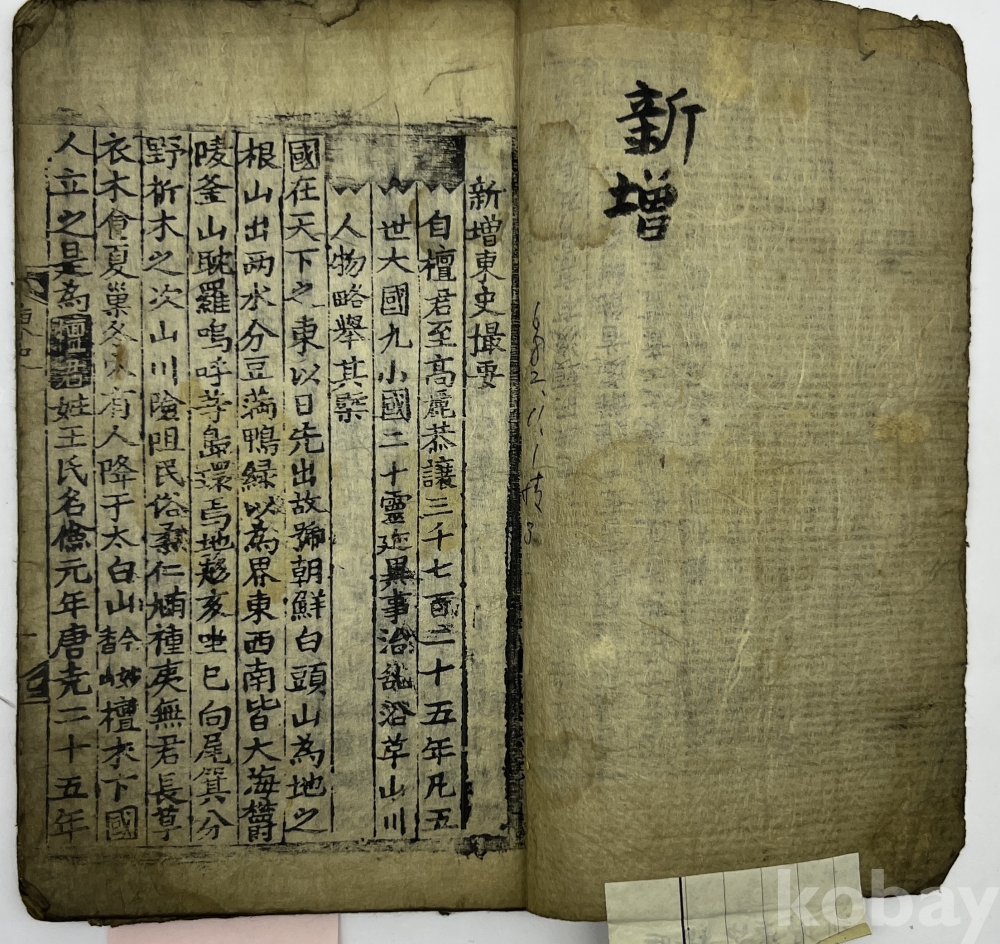 新增
新增東史撮要
自檀君至高麗恭讓三千七百二十五年凡五
世大國九小國二十靈迹異事治亂沿草山川
人物略舉其槩
國在天下之東以日先出故號朝鮮白頭山為地之
根山出两水分豆滿鴨緑以為界東西南皆大海欝
陵釜山耽羅嗚呼等島環焉地形亥坐巳向尾箕分
野析木之次山川險阻民俗柔仁種夷無君長草
衣木食夏巢冬穴有人降于太白山檀木下國
人立之是為檀君姓王氏名儉元年唐尭二十五年
kobay